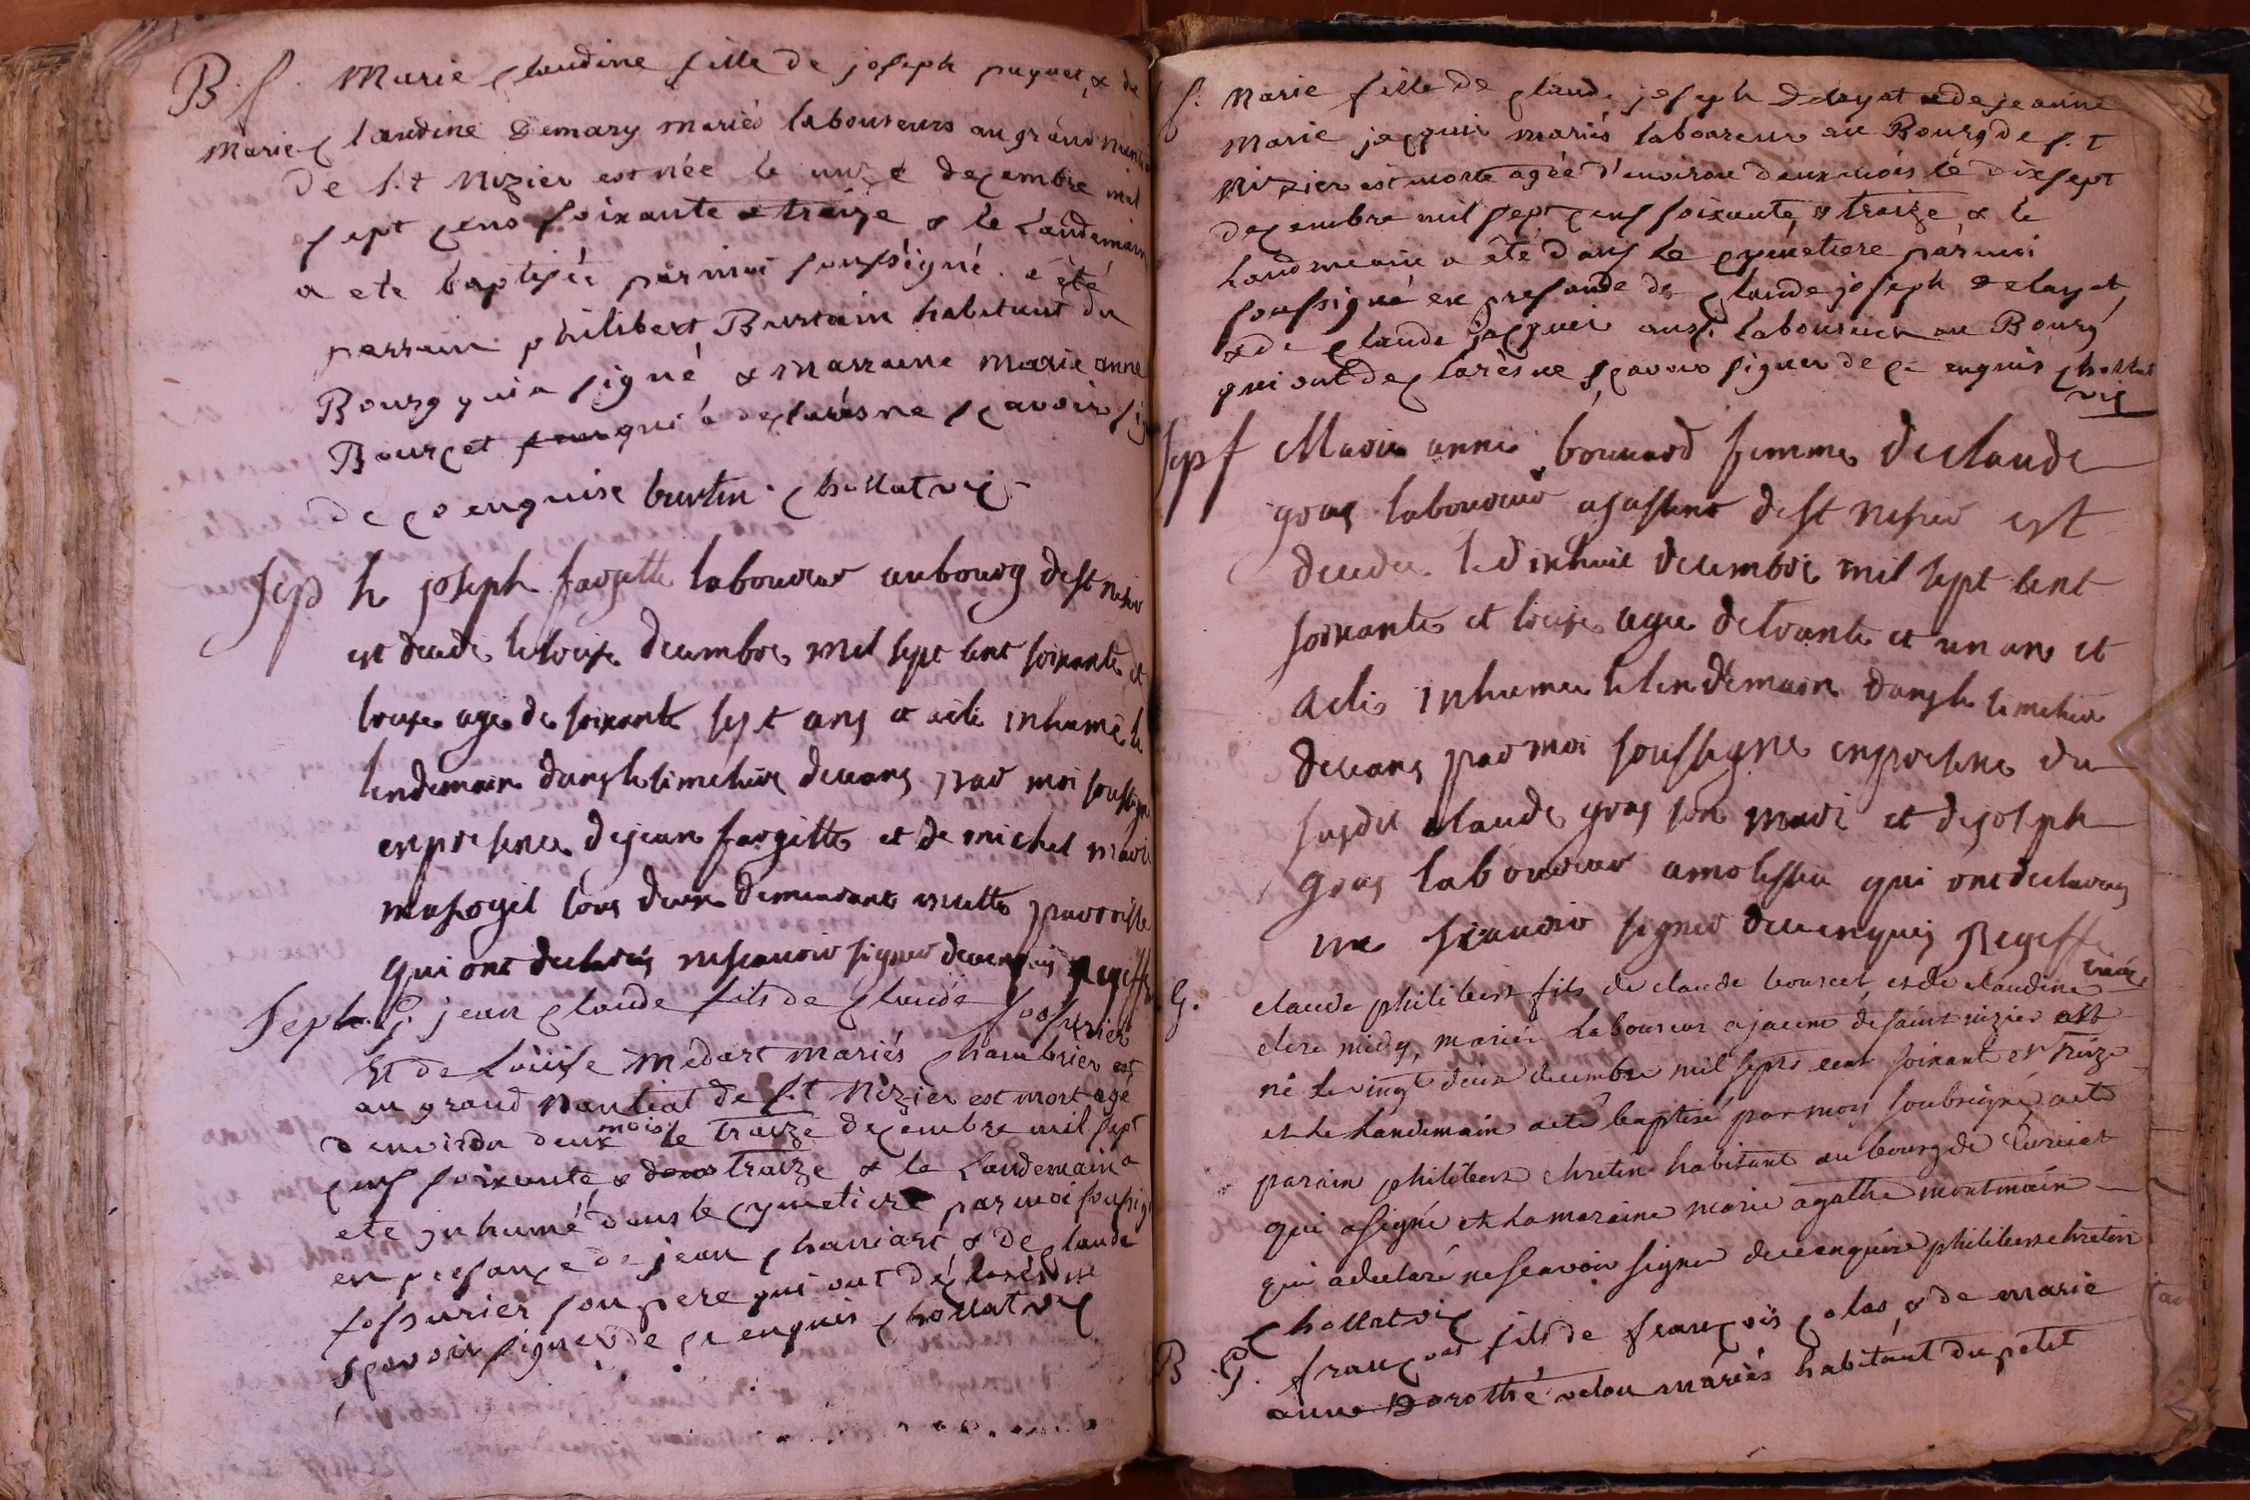 B. f. Marie Claudine fille de joseph puguet, & de
Marie Claudine Demary mariés laboureurs au grand
de S.t Nizier est née le unze decembre mil
sept cens soixante & traize & le Landemain
a eté baptisée par moi soussigné. a été
parrain philibert Burtain habitant du
Bourg qui a signé & marraine Marie anne
Bourcet qui a declarés ne scavoir
de ce enquise burtin. Chollat vic
Sep h joseph fargette laboureur au bourg de st nisier
est decede le treise decembre mil sept cent soixante et
treise age de soixante sept ans et a été inhumé le
lendemain dans le simetiere deceans par moi soussigne
en presence de jean fargette et de michel
tous deux demeurant en cette parroisse
qui ont declarés ne scauoir signer de ce enquis
Sept. G. jean Claude fils de Claude fossurier
Et de Louise Médart mariés Chambrier
au grand Nantiat de S.t Nizier est mort agé
d'environ deux mois le traize decembre mil sept
cens soixante & traize & le Landemain a
eté inhumé dans le cymetiere par moi soussigné
en presance de jean Chaniart & de Claude
fossurier son pere qui ont déclarés ne
scavoir signer de ce enquis Chollat vic
f. Marie fille de Claude joseph Delayat & de jeanne
Marie jacquir mariés laboureurs au Bourg de S.t
Nizier est morte agée d'environ deux mois le dix sept
decembre mil sept cens soixante & traize & le
Landmeain a été dans le cymetiere par moi
soussigné en presande de Claude joseph Delayat
& de Claude jacquir aussi laboureur au Bourg
qui ont declarés ne scavoir signer de ce enquis Chollat
vic
sep f Marie anne bouuard femme de claude
gras laboureur de st nisier est
decedee le dixhuit decembre mil sept cent
soixante et treise agee de trante et un ans et
a été inhumee le lendemain dans le simetiere
deceans par moi soussigne en presence du
susdit claude gras son mari et de joseph
gras laboureur qui ont declares
ne scauoir signer de ce enquis
G. claude philibert fils de claude bourcet, et de claudine
mariés laboureur a jacime de saint nizier est
né le vingt deux decembre mil sept cent soixante et treize
et le landemain a eté baptisé par moy soubsigné a eté
parain philibert chretin habitant au bourg de Curciat
qui a signé et la maraine marie agathe montmain
qui a declaré ne scavoir signer de ce enquise philibert chretin
Chollat vic
B G. françois fils de françois Colas & de marie
anne Dorothé velon mariés habitant du petit